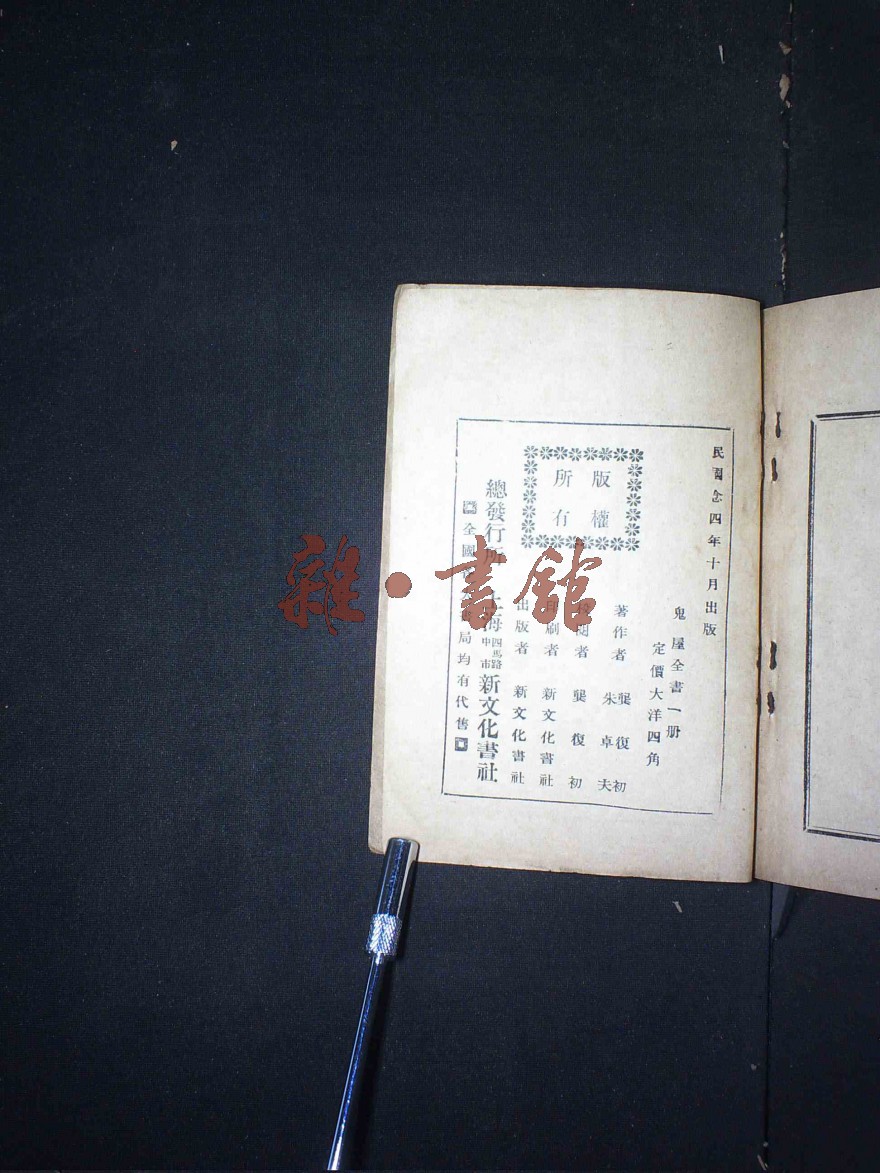 民國念四年十月出版
鬼屋全書一册
定價大洋四角
著作者 龔復初
朱卓夫
閱者 龔復初
印刷者 新文化書社
出版者 新文化書社
版權
所有
總發行所 上海四馬路中市新文化書社
全國局均有代售
雜·書館